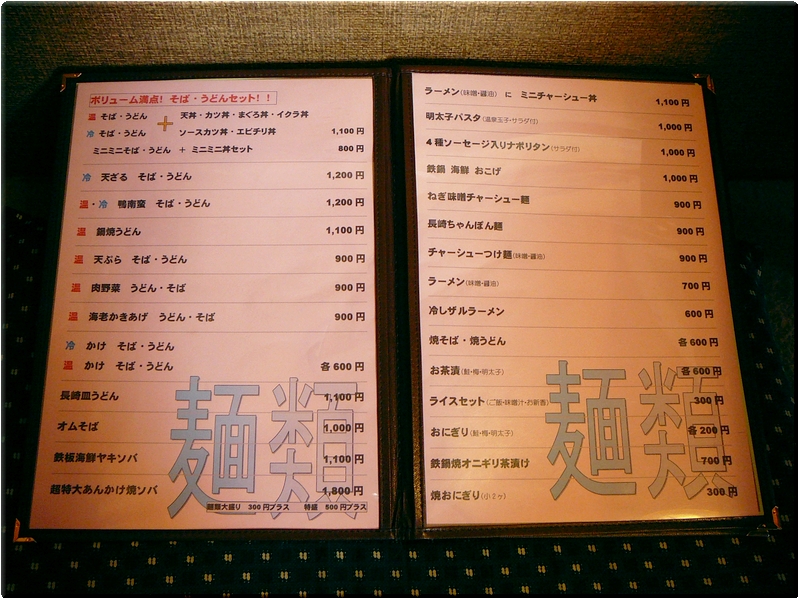 ボリューム満点！そば・うどんセット！！
温 そば・うどん ＋ 天丼・カツ丼・まぐろ丼・イクラ丼
冷 そば・うどん ソースカツ丼・エビチリ丼 1,100円
ミニミニそば・うどん ＋ ミニミニ丼セット 800円
冷 天ざる そば・うどん 1,200円
温・冷 鴨南蛮 そば・うどん 1,200円
温 鍋焼うどん 1,100円
温 天ぷら そば・うどん 900円
温 肉野菜 うどん・そば 900円
温 海老かきあげ うどん・そば 900円
冷 かけ そば・うどん
温 かけ そば・うどん 各600円
長崎皿うどん 1,100円
オムそば 1,000円
鉄板海鮮ヤキソバ 1,100円
超特大あんかけ焼ソバ 1,800円
麺類
麺類大盛り 300円プラス 特盛 500円プラス
ラーメン(味噌・醤油) に ミニチャーシュー丼 1,100円
明太子パスタ(温泉玉子・サラダ付) 1,000円
4種ソーセージ入りナポリタン(サラダ付) 1,000円
鉄鍋 海鮮 おこげ 1,000円
ねぎ味噌チャーシュー麺 900円
長崎ちゃんぽん麺 900円
チャーシューつけ麺(味噌・醤油) 900円
ラーメン(味噌・醤油) 700円
冷しザルラーメン 600円
焼そば・焼うどん 各600円
お茶漬(鮭・梅・明太子) 各600円
ライスセット(ご飯・味噌汁・お新香) 300円
おにぎり(鮭・梅・明太子) 各200円
鉄鍋焼オニギリ茶漬け 700円
焼おにぎり(小2ヶ) 300円
麺類